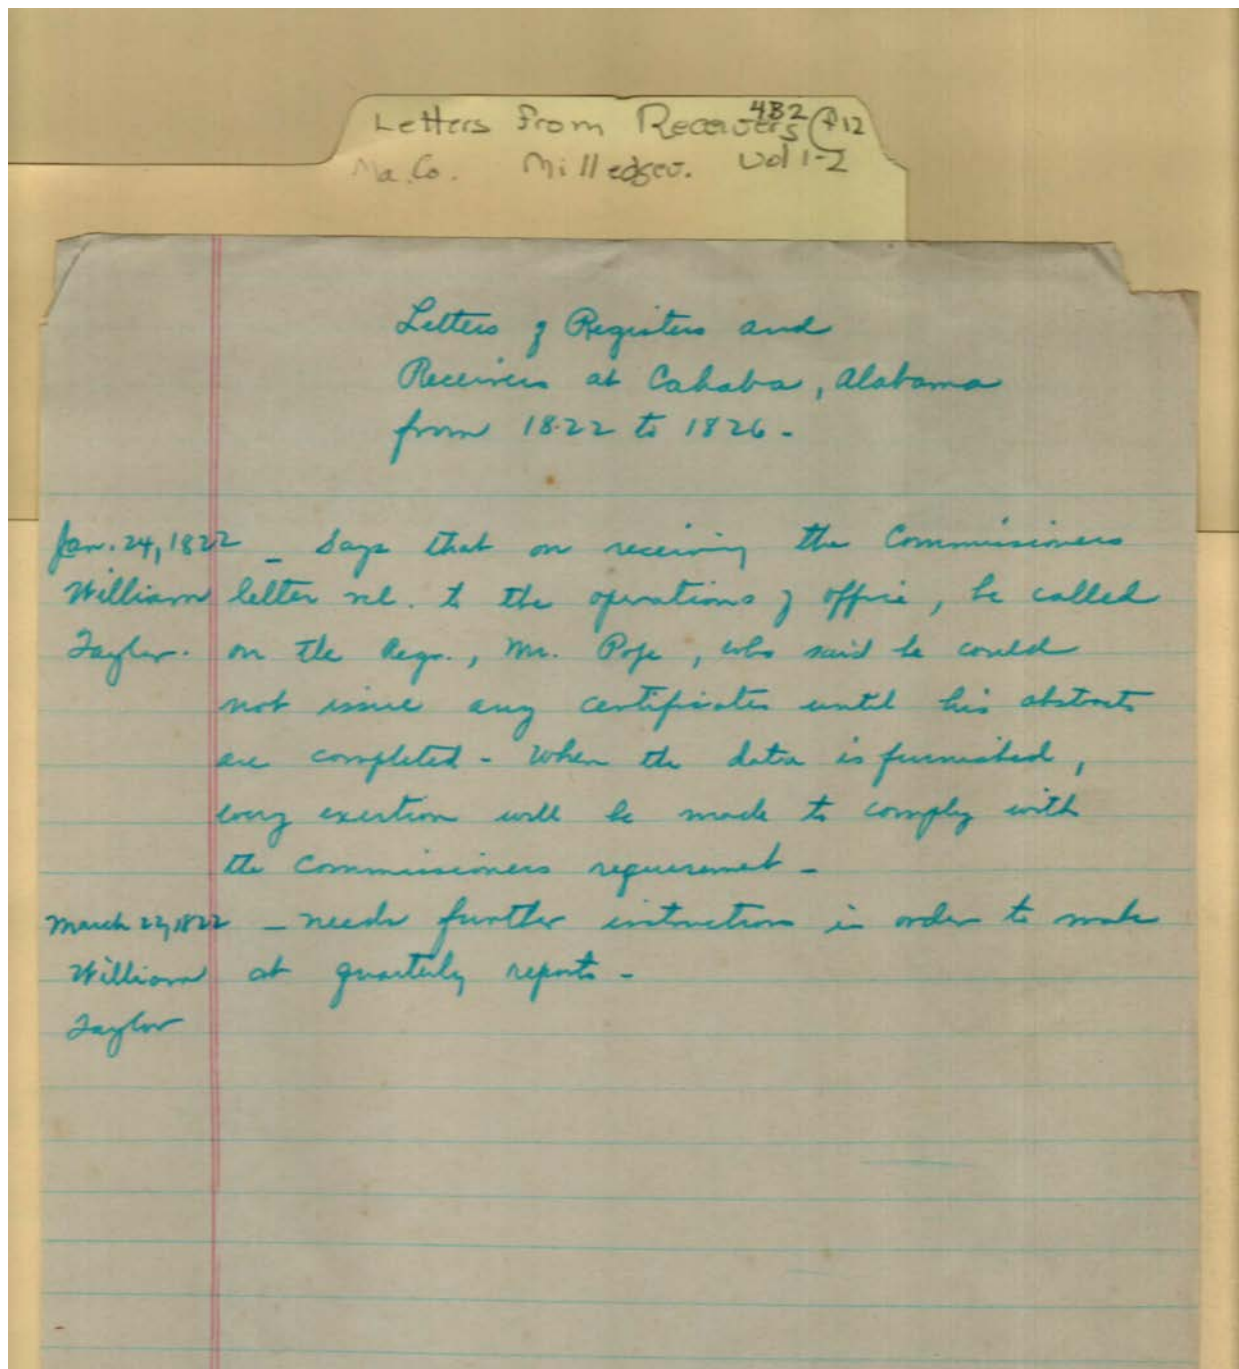 Letters from Receivers 4B2 12
Ma. Co. Milledgev. Vol 1-2
Letters of Registers and
Receivers at Cahaba, Alabama
from 1822 to 1826 -
Jan. 24, 1822 - Says that on receiving the Commissioners
William letter rel. to the operations of office, he called
Taylor. on the Regr., Mr. Pope, who said he could
not issue any certificates until his abstracts
are completed - When the data is furnished,
every exertion will be made to comply with
the Commissioners requirement -
March 22, 1822 - needs further instructions in order to make
William at quarterly reports -
Taylor